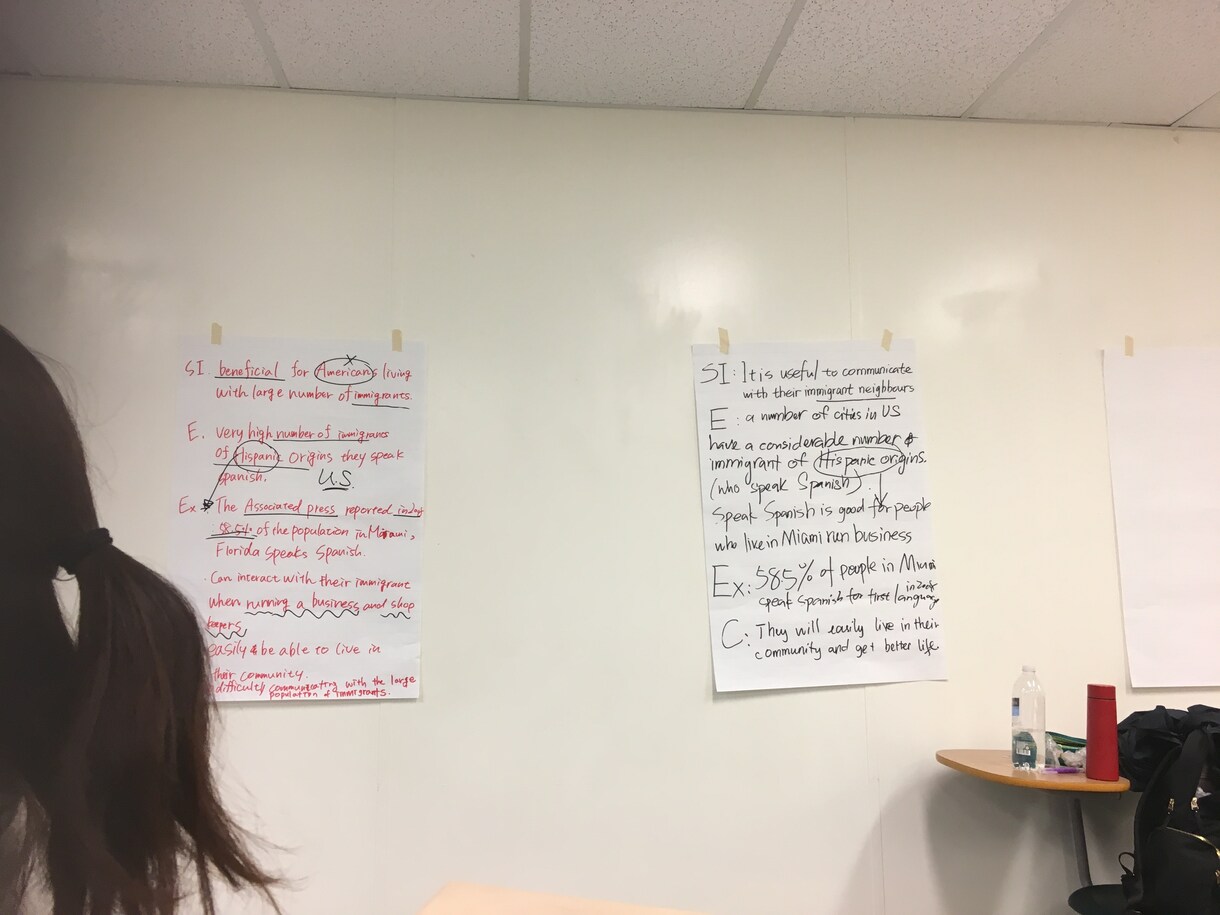 SI. beneficial for Americans living
with large number of immigrants.
E. very high number of immigrants
of Hispanic Origins they speak
spanish. U.S.
Ex The Associated press reported
58.5% of the population in Miami,
Florida speaks Spanish.
Can interact with their immigrant
when running a business and shop
keepers
easily & be able to live in
their community.
difficulty communicating with the large
population of immigrants.
SI: It is useful to communicate
with their immigrant neighbours
E: a number of cities in US
have a considerable number of
immigrant of Hispanic origins.
(who speak Spanish).
Speak Spanish is good for people
who live in Miami run business
Ex: 58.5% of people in Miami
speak Spanish for first language
C: They will easily live in their
community and get better life